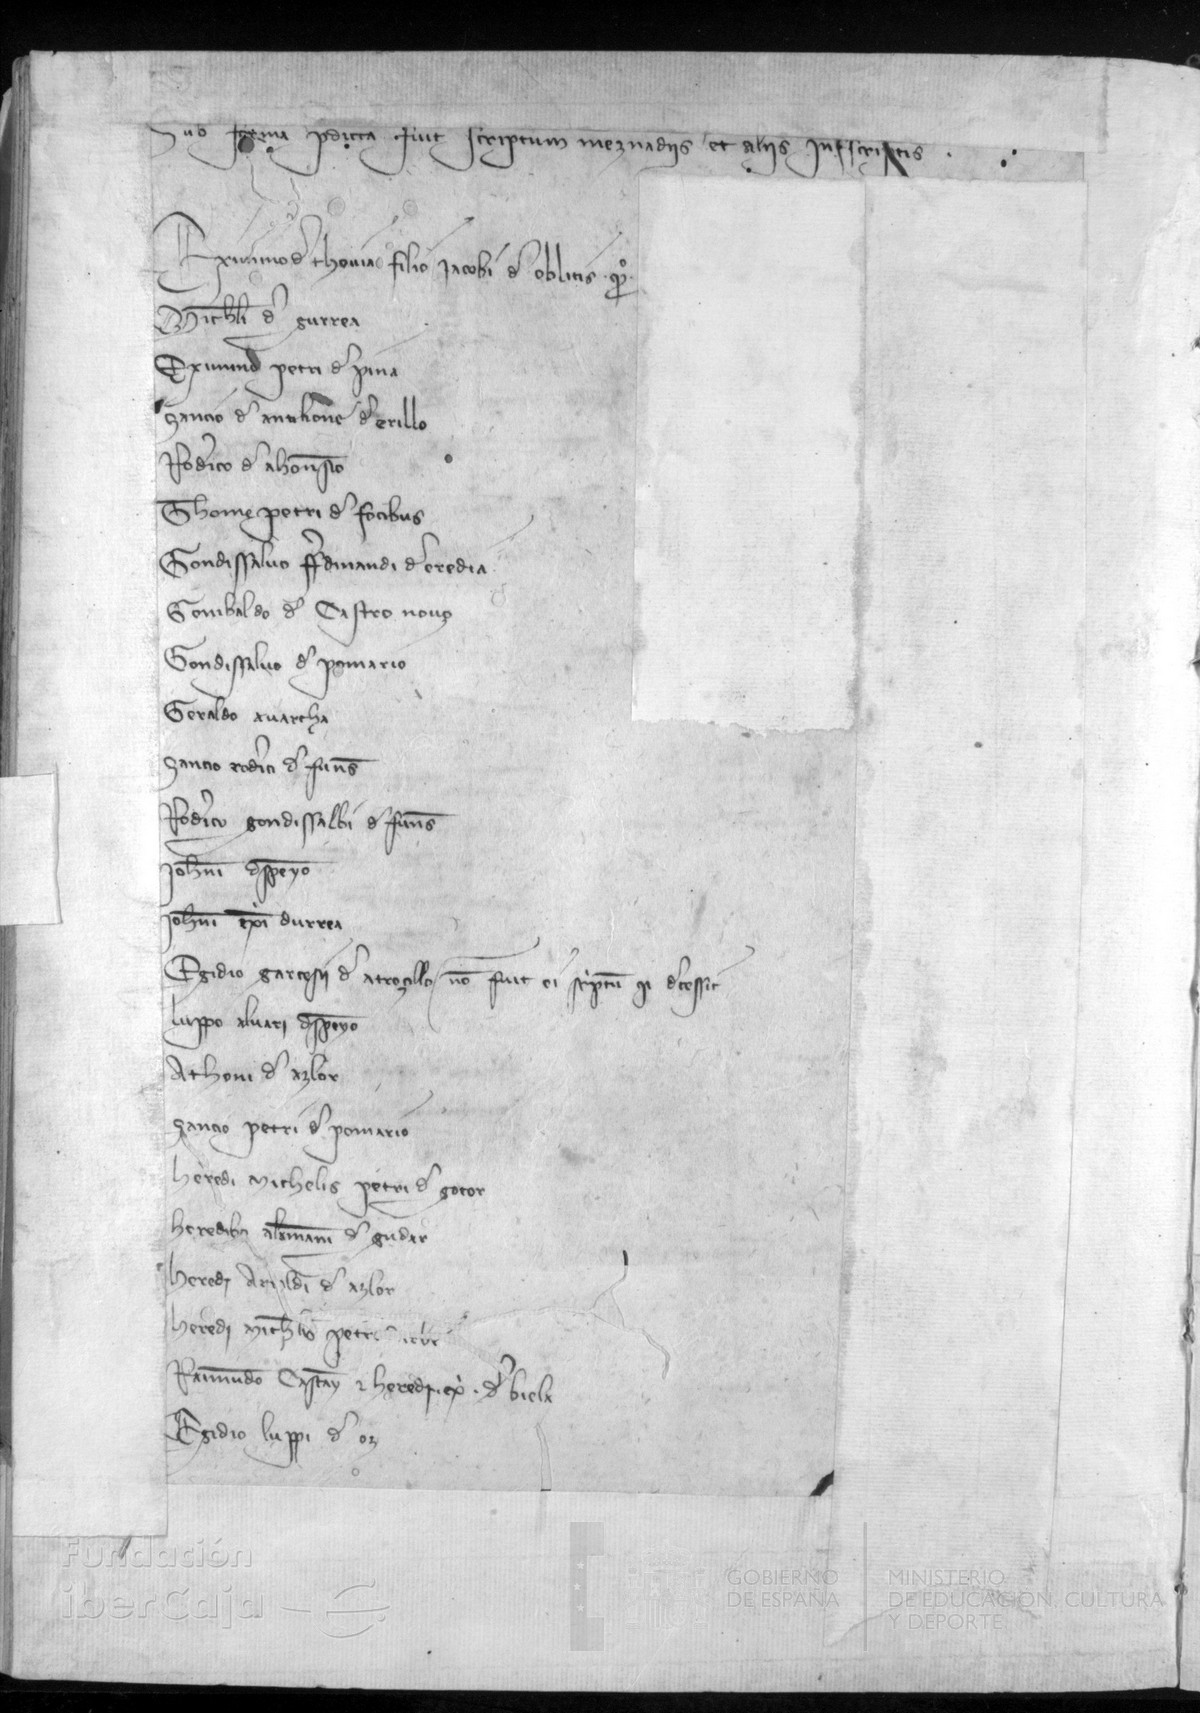 Sub forma pdicta fuit scriptum meznadiis et aliis infscriptis .
Eximino d' thovia filio Jacobi d' oblitis qº
Michli d' gurrea
Eximino petri d' pina
Sancio d' antilione d' erillo
Rod'ico d' ahonso
Thome petri d' focibus
Gondissalvo ff'dinandi d' eredia
Gombaldo d' Castro novo
Gondissalvo d' pomario
Geraldo avarcha
Sancio rod'ici d' funs
Rod'ico gondissalbi d' funs
Johni despeyo
Johni exi durrea
Egidio garcesii d' atrocillo no fuit ei scriptu qi d'cessit
luppo alvari despeyo
Athoni d' azlor
Sancio petri d' pomario
heredi Michelis petri d' gotor
heredibz d' gudar
heredi Arnldi d' azlor
heredi Michlis petri
Raimundo Castay et heredi exi . d' biela
Egidio luppi d' oz
Fundación
iberCaja
GOBIERNO
DE ESPAÑA
MINISTERIO
DE EDUCACIÓN, CULTURA
Y DEPORTE